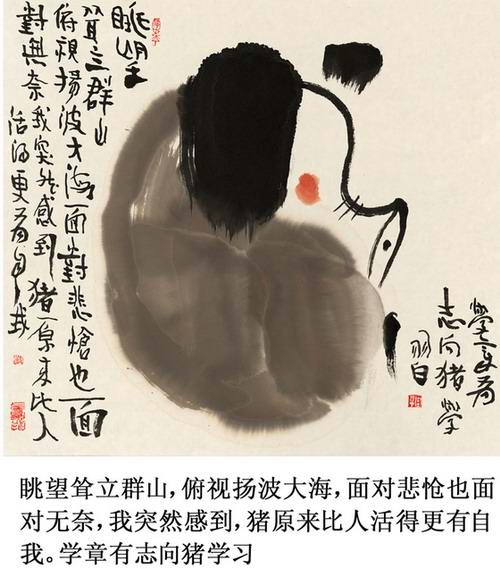 眺望
耸立群山
俯视扬波大海面對悲愴也面
對無奈我突然感到猪原来比人
活得更有自我
學章有
志向猪學
習
眺望耸立群山，俯视扬波大海，面对悲怆也面
对无奈，我突然感到，猪原来比人活得更有自
我。学章有志向猪学习